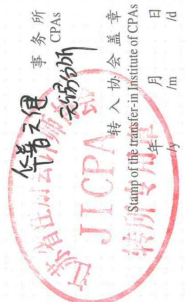 事务所
CPAs
转入协会盖章
Stamp of the transfer-in Institute of CPAs
年 月 日
/y /m /d
江苏省注册会计师协会
JICPA
转所专用章